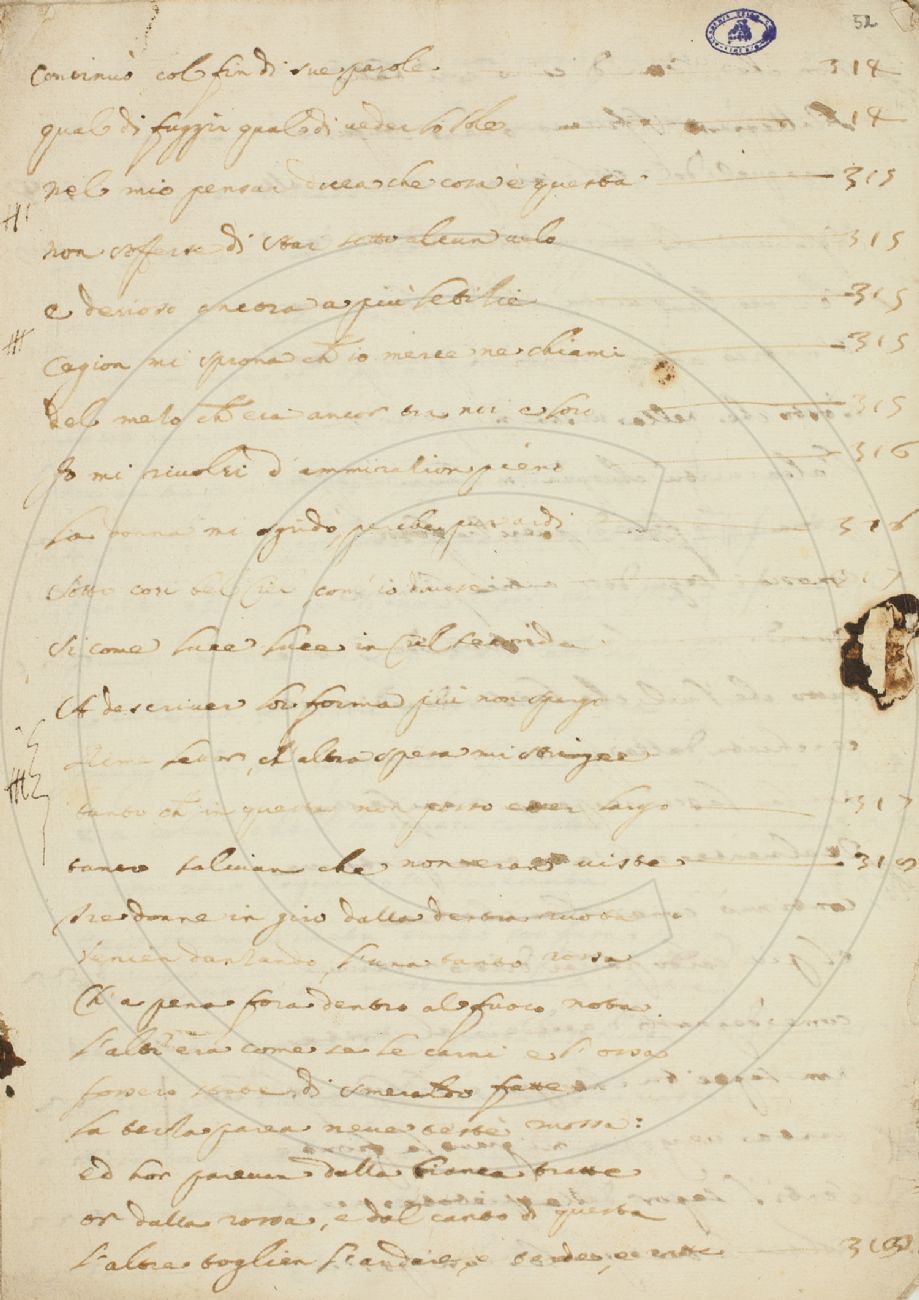 52
Continuò col fin di sue parole 314
qual di fuggir qual di ueder lo sole 314
nel mio pensar dicea che cosa è questa 315
non sofferse di star sotto alcun uelo 315
e desioso ancora a più letitie 315
Cagion mi sprona ch' io merce ne chiami 315
del melo ch' era ancor tra noi e loro 315
Io mi riuolsi d' ammiration pieno 316
La donna mi sgridò, perche pur ardi 316
Sotto cosi bel Ciel, com' io diuiso 317
Si come luce luce in Ciel seconda
A descriuer lor forma più non spargo
Rime Lettor, ch' altra spesa mi stringe
tanto ch' in questa non posso esser largo 317
tanto saliuan che non eran uiste 318
Tre donne in giro dalla destra ruota
Venien danzando, l' una tanto rossa
Ch' a pena fora dentro al fuoco nota
L' altr' era come se le carni e l' ossa
fossero state di smeraldo fatte
La terza parea neue testè mossa:
Ed hor pareuan dalla bianca tratte
or dalla rossa, e dal canto di questa
L' altre toglien l' andare, e tarde, e ratte 318